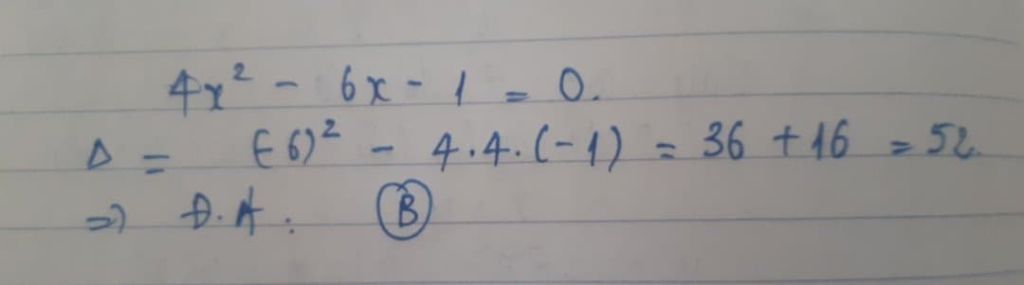 4x² - 6x - 1 = 0.
Δ = (-6)² - 4.4.(-1) = 36 + 16 = 52.
=> Đ.A : B